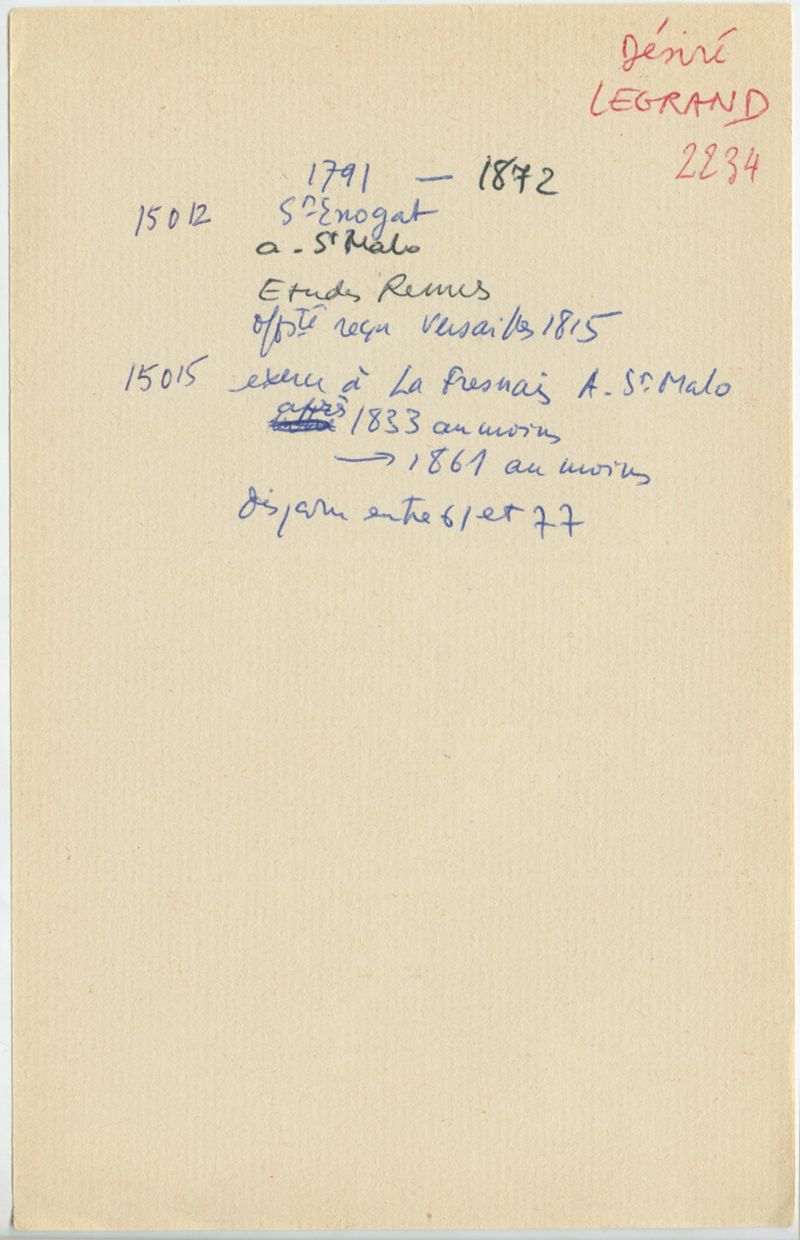 Désiré
LEGRAND
2234
1791 — 1872
15012 St-Enogat
a. St Malo
Etudes Rennes
offté reçu Versailles 1815
15015 exerce à La Fresnais A. St Malo
après 1833 au moins
→ 1861 au moins
disparu entre 61 et 77